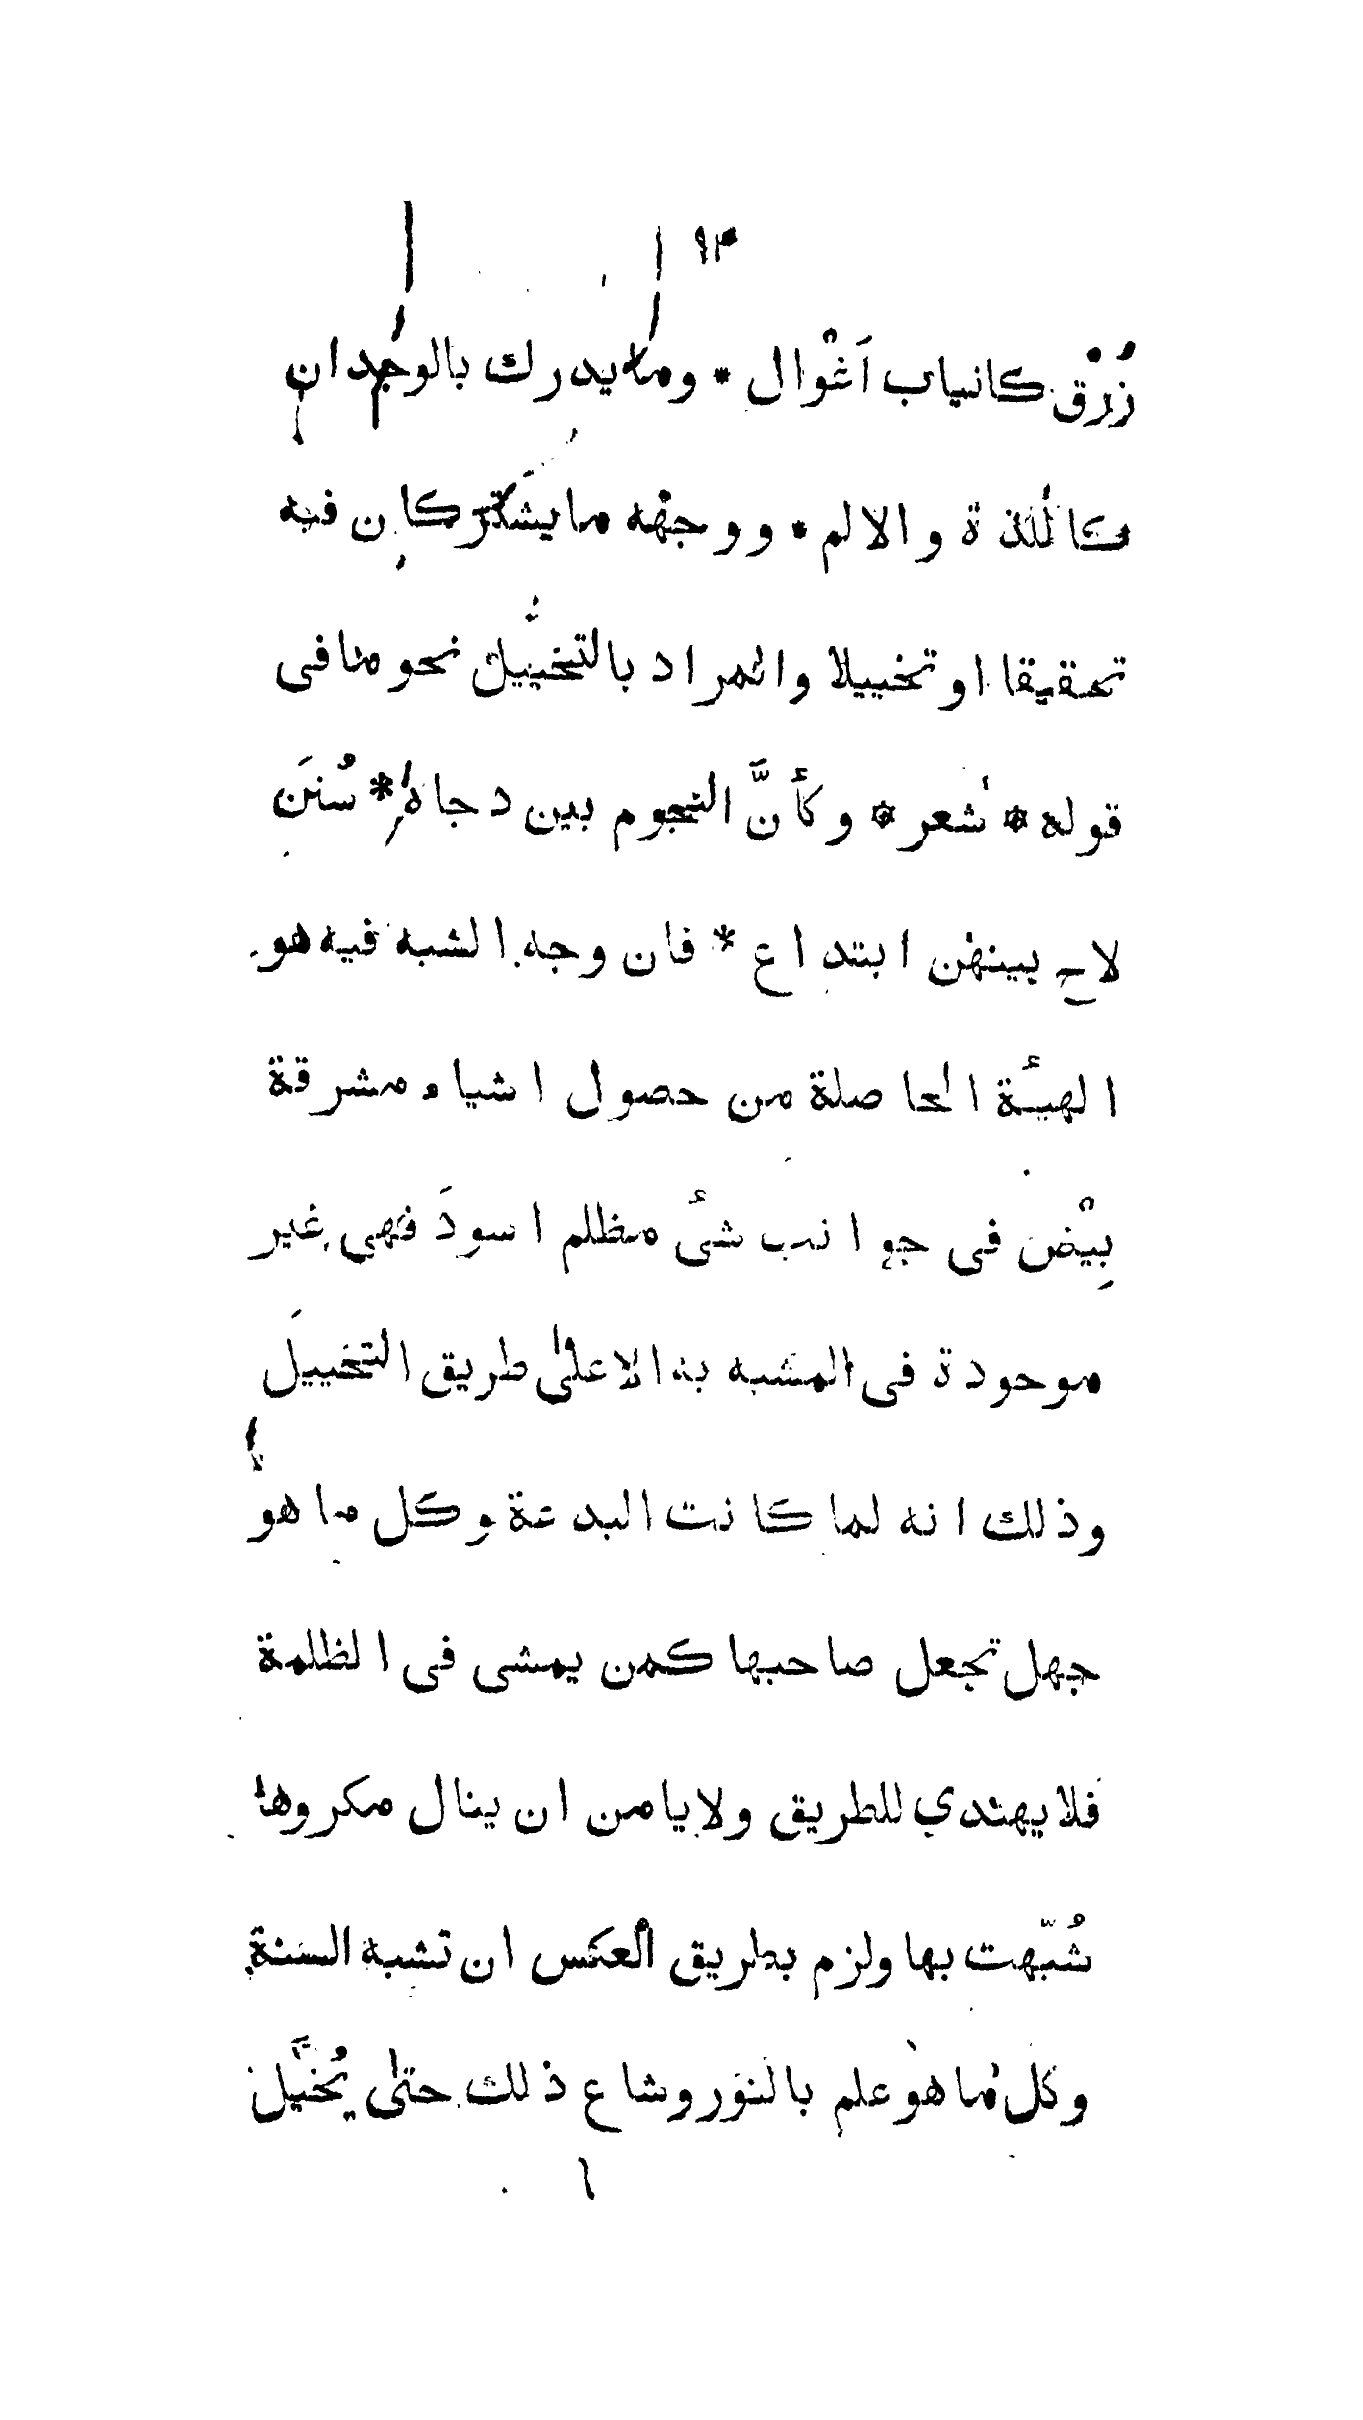 ٩٣
زُرْق كانياب اَغْوال * وما يدرك بالوجدان
كاللذة والالم * ووجهه ما يشتركان فيه
تحقيقا او تخييلا والمراد بالتخييل نحو ما في
قوله * شعر * وكأنَّ النجوم بين دجاه * سُننَ
لاح بينهن ابتداع * فان وجه الشبه فيه هو
الهيئة الحاصلة من حصول اشياء مشرقة
بِيْض في جوانب شئ مظلم اسودَ فهي غير
موجودة في المشبه به الا على طريق التخييل
وذلك انه لما كانت البدعة وكل ما هو
جهل تجعل صاحبها كمن يمشى فى الظلمة
فلا يهتدي للطريق ولا يامن ان ينال مكروها
شُبّهت بها ولزم بطريق العكس ان تشبه السنة
وكل ما هو علم بالنور وشاع ذلك حتى يُخَيَّل